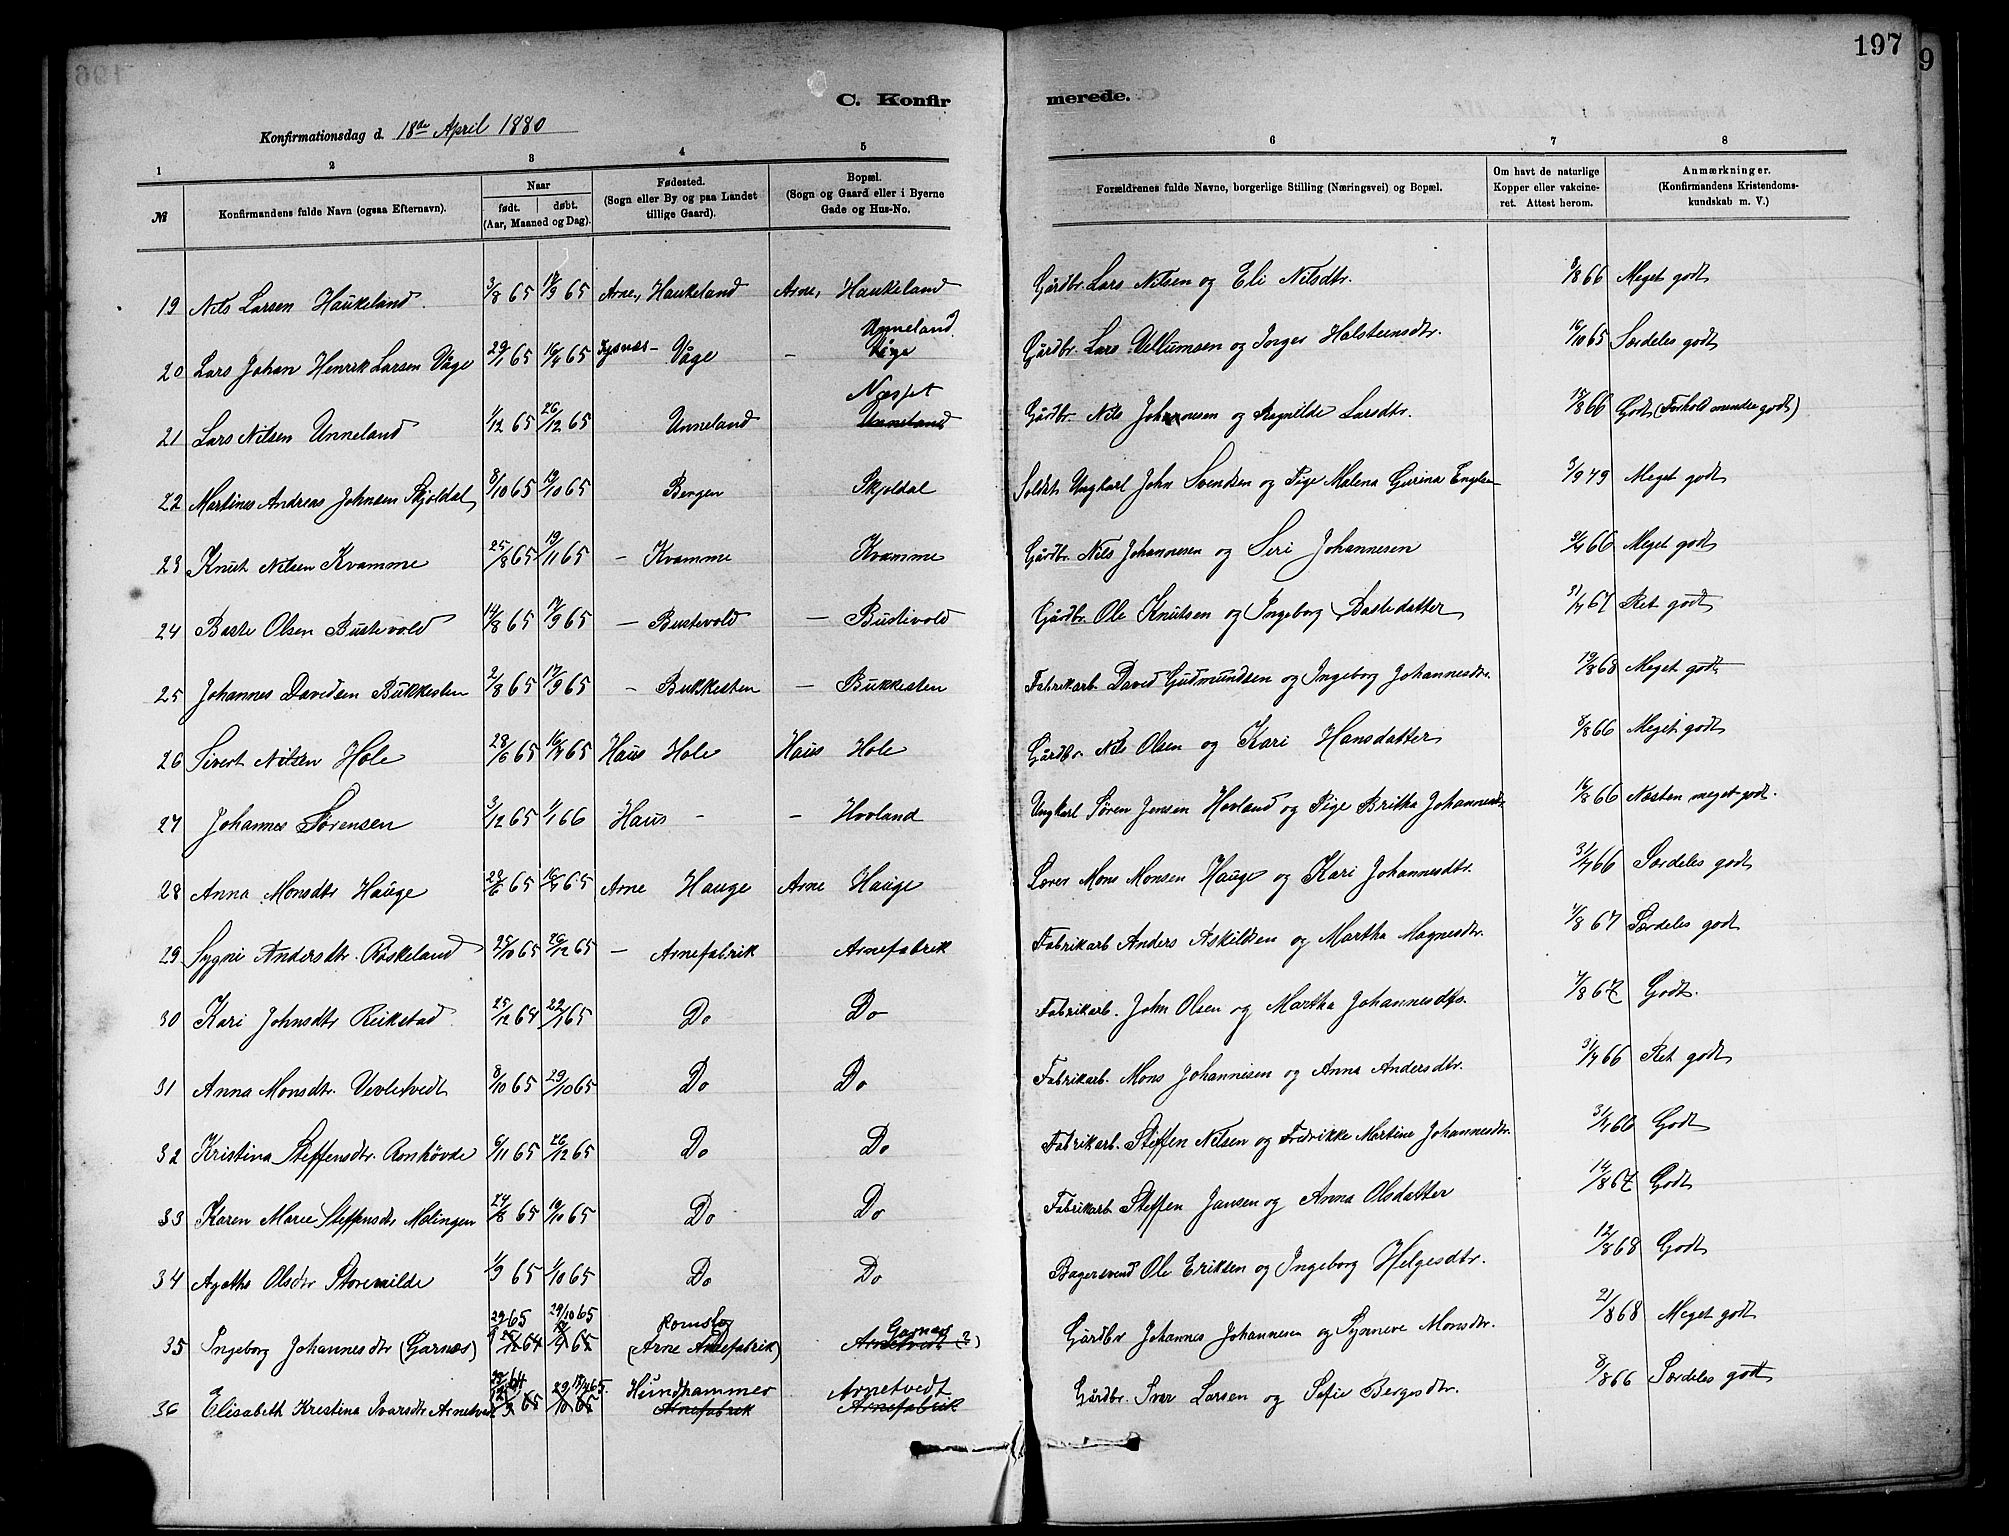 197
9
C. Konfirmerede.
Konfirmationsdag d. 18de April 1880
1 2 3 4 5 6 7 8
№ Konfirmandens fulde Navn (ogsaa Efternavn). Naar født. døbt. (Aar, Maaned og Dag). Fødested. (Sogn eller By og paa Landet tillige Gaard). Bopæl. (Sogn og Gaard eller i Byerne Gade og Hus-No. Forældrenes fulde Navne, borgerlige Stilling (Næringsvei) og Bopæl. Om havt de naturlige Kopper eller vakcineret. Attest herom. Anmærkninger. (Konfirmandens Kristendomskundskab m. V.)
19 Nils Larsen Haukeland 3/8 65 Arne, Haukeland Arne, Haukeland Gårdbr. Lars Nilsen og Eli Nilsdtr. 3/8 66 Meget godt
20 Lars Johan Henrik Larsen Våge 29/1 65 16/4 65 Tysnæs - Våge - Unneland Våge Gårdbr. Lars Villumsen og Inger Halsteensdtr. 16/10 65 Særdeles godt
21 Lars Nilsen Unneland 1/12 65 26/12 65 Unneland Næsset Unneland Gårdbr. Nils Johannesen og Ragnilde Larsdtr. 15/8 66 Godt (Forhold mindre godt)
22 Martines Andreas Johnsen Skjoldal 8/10 65 Bergen Skjoldal Soldat Ungkarl John Svendsen og Pige Malena Gurina Engelsen 3/9 79 Meget godt
23 Knut Nilsen Kvamme 25/8 65 19/11 65 - Kvamme Kvamme Gårdbr. Nils Johannesen og Siri Johannesen Meget godt
24 Baste Olsen Bustevold 14/8 65 17/9 65 - Bustevold - Bustevold Gårdbr. Ole Knutsen og Ingeborg Bastedatter 31/7 67 Ret godt
25 Johannes Davidsen Bukkesten 2/8 65 17/9 65 - Bukkesten - Bukkesten Fabrikarb. David Gudmundsen og Ingeborg Johannesdtr. 19/8 68 Meget godt
26 Sivert Nilsen Hole 28/6 65 16/7 65 Haus Hole Haus Hole Gårdbr Nils Olsen og Kari Hansdatter 8/8 66 Meget godt
27 Johannes Sørensen 3/12 65 1/1 66 Haus - - Hovland Ungkarl Søren Jensen Hovland og Pige Britha Johannesdtr. 16/8 66 Næsten meget godt.
28 Anna Monsdtr Hauge 65 16/7 65 Arne Hauge Arne Hauge Lærer Mons Monsen Hauge og Kari Johannesdtr. 31/7 66 Særdeles godt
29 Sygni Andersdtr. Røskeland 25/10 65 26/12 65 - Arnefabrik Arnefabrik Fabrikarb Anders Askildsen og Martha Magnesdtr. 7/8 67 Særdeles godt
30 Kari Johnsdtr Reikstad 25/12 64 22/1 65 Do Do Fabrikarb. John Olsen og Martha Johannesdtr. 7/8 67 Godt.
31 Anna Monsdtr. Vevletvedt 8/10 65 29/10 65 Do Do Fabrikarb. Mons Johannesen og Anna Andersdtr. 31/7 66 Ret godt
32 Kristina Steffensdtr. Romhøvde 6/11 65 26/12 65 Do Do Fabrikarb. Steffen Nilsen og Fredrikke Martine Johannesdtr. 31/7 66 Godt
33 Karen Marie Steffensdtr Mølingen 24/8 65 65 Do Do Fabrikarb Steffen Jansen og Anna Olsdatter 14/8 67 Godt
34 Agathe Olsdtr Storemilde 1/9 65 1/10 65 Do Do Bagersvend Ole Eriksen og Ingeborg Helgesdtr. 12/8 68 Godt
35 Ingeborg Johannesdtr (Garnæs) 29/9 65 29/10 65 Romslo (Arne Arnefabrik) Garnæs Arnetvedt (?) Gårdbr Johannes Johannesen og Synneve Monsdtr. 21/8 68 Meget godt
36 Elisabeth Kristina Ivarsdtr Arnetvedt Hundhammer Arnefabrik Arnetvedt Arnefabrik Gårdbr. Iver Larsen og Sofie Bergesdtr. 8/8 66 Særdeles godt